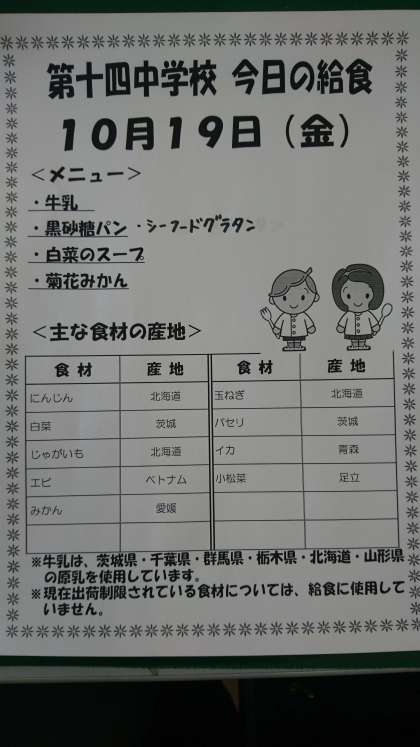 第十四中学校 今日の給食
10月19日（金）
＜メニュー＞
・牛乳
・黒砂糖パン ・シーフードグラタン
・白菜のスープ
・菊花みかん
＜主な食材の産地＞
食材 産地 食材 産地
にんじん 北海道 玉ねぎ 北海道
白菜 茨城 パセリ 茨城
じゃがいも 北海道 イカ 青森
エビ ベトナム 小松菜 足立
みかん 愛媛
※牛乳は、茨城県・千葉県・群馬県・栃木県・北海道・山形県
の原乳を使用しています。
※現在出荷制限されている食材については、給食に使用して
いません。